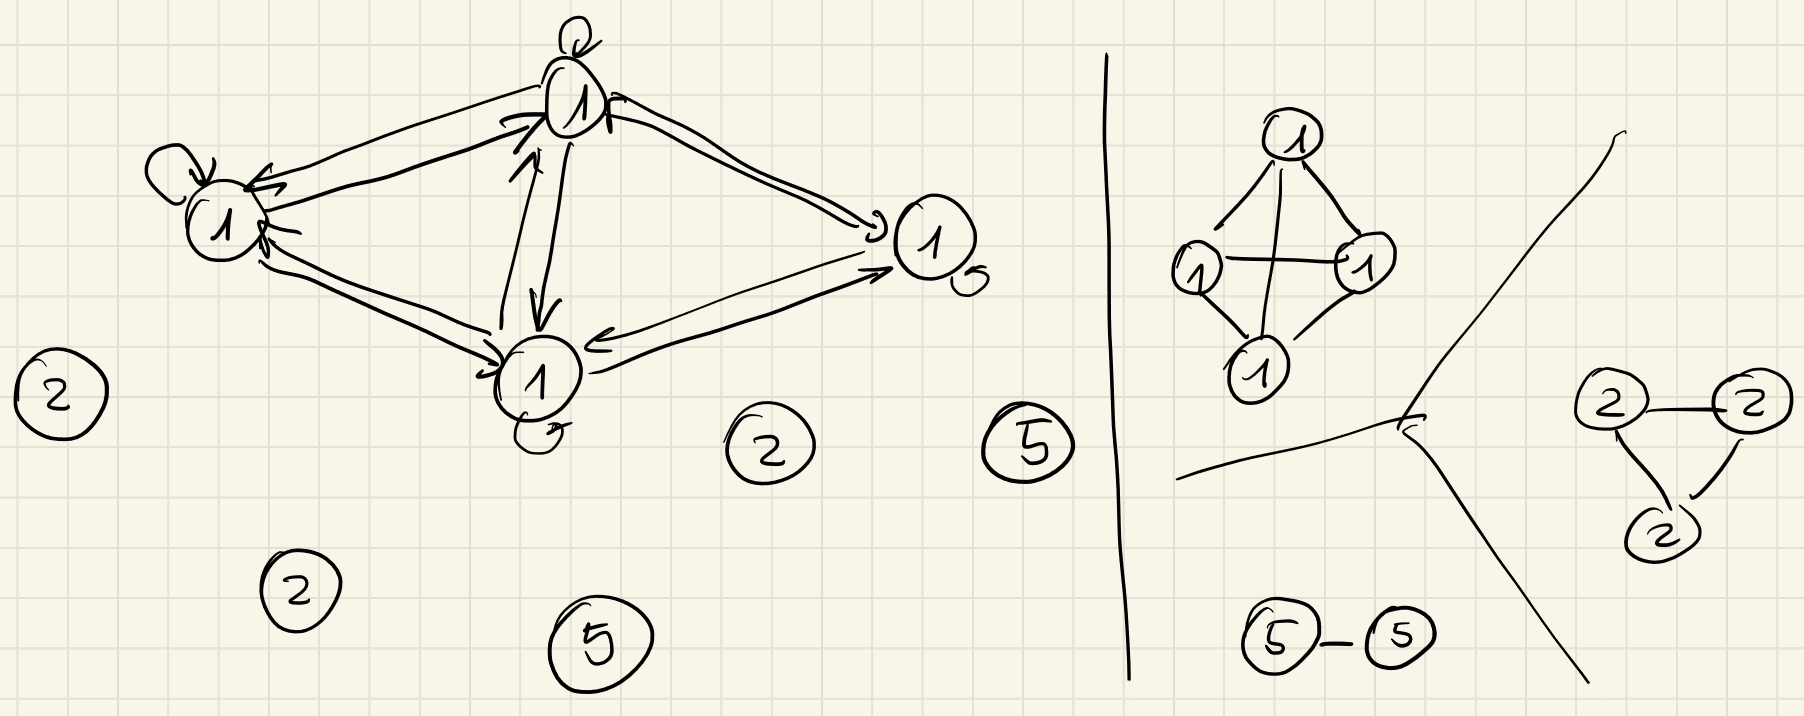 1
1
1
1
2
2
5
2
5
1
1
1
1
2
2
2
5
5